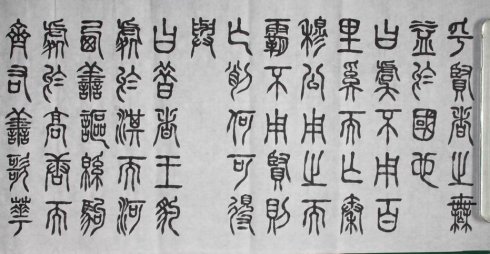 乎賢者之無
益於國也
曰虞不用百
里奚而亡秦
穆公用之而
霸不用賢則
亡削何可得
與
曰昔者王豹
處於淇而河
西善謳緜駒
處於高唐而
齊右善歌華